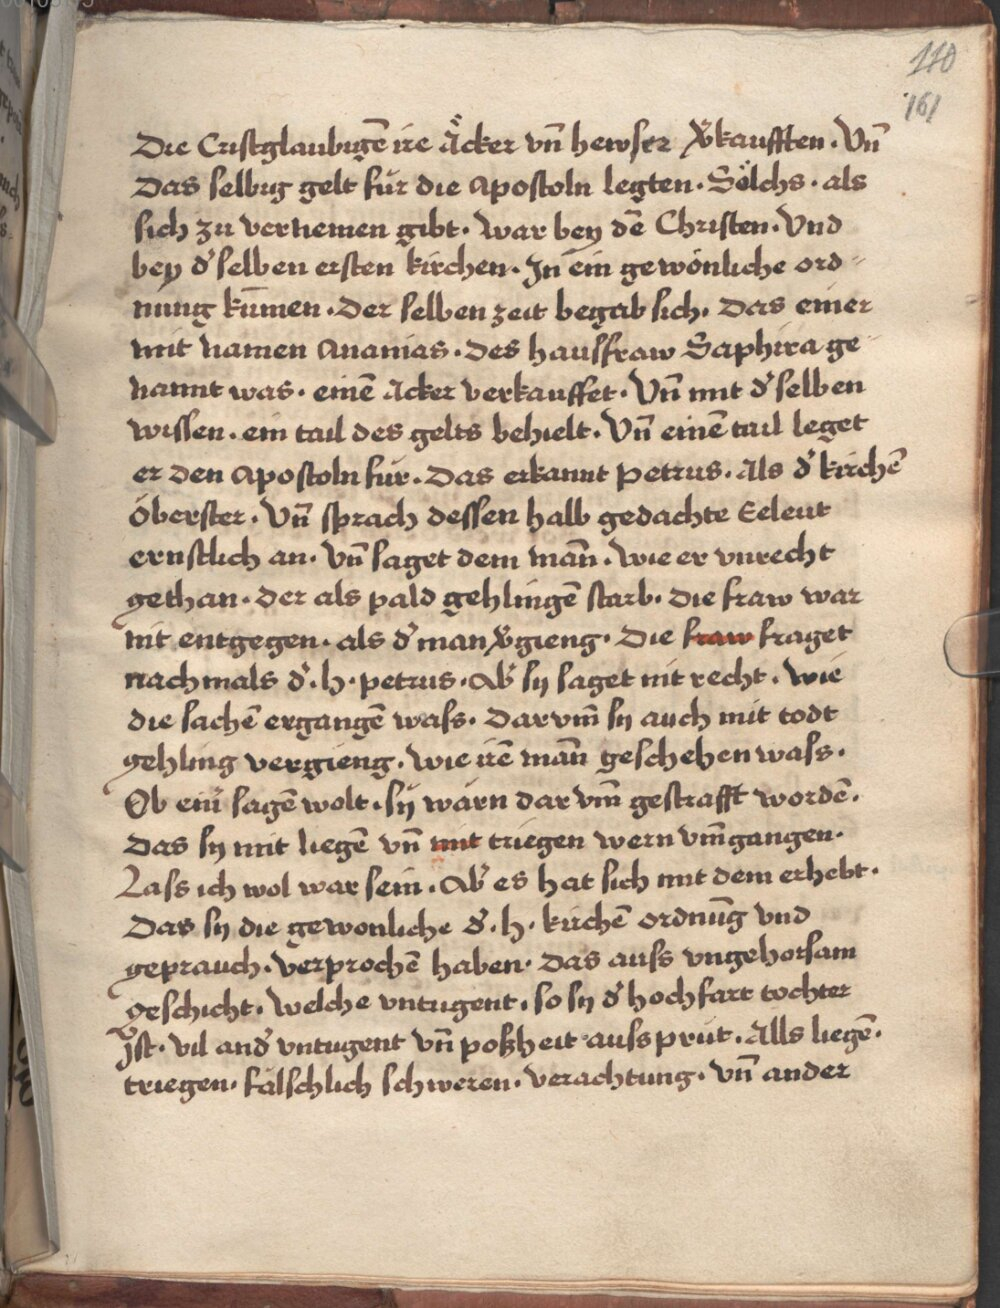 110
161
Die Cristglaubigē ire Äcker vn̄ hewser v̄kaufften · Vn̄
Das selbig gelt für die Apostoln legten · Sölchs · als
sich zu vernemen gibt · war bey dē Christen · Vnd
bey d' selben ersten kirchen · In ein gewönliche ord-
nung kūmen · Der selben zeit begab sich · Das einer
mit namen Ananias · des haussfraw Saphira ge-
nannt was · einē Acker verkauffet · Vn̄ mit d' selben
wissen · ein tail des gelts behielt · Vn̄ einē tail leget
er den Apostoln für · Das erkannt Petrus · Als d' kirchē
öberster · Vn̄ sprach dessen halb gedachte Eeleut
ernstlich an · vn̄ saget dem man̄ · wie er vnrecht
gethan · der als pald gehlingē starb · die fraw war
nit entgegen · als d' man v̄gieng · Die fraw fraget
nachmals d' · h · petrus · Ab' sy saget nit recht · wie
die sachē ergangē wass · darvm̄ sy auch mit todt
gehling vergieng · wie irē man̄ geschehen wass ·
Ob ein' sagē wolt · sy wärn dar vm̄ gestrafft wordē ·
Das sy mit liegē vn̄ mit triegen wern vm̄gangen ·
Lass ich wol war sein · Ab' es hat sich mit dem erhebt ·
Das sy die gewonliche d' · h · kirchē ordnūg vnd
geprauch · verprochē haben · das auss vngehorsam
geschicht · welche vntugent · so sy d' hochfart tochter
Ist · vil and' vntugent vn̄ poßheit aussprüt · Alls liegē ·
triegen · fälschlich schweren · verachtung · vn̄ ander